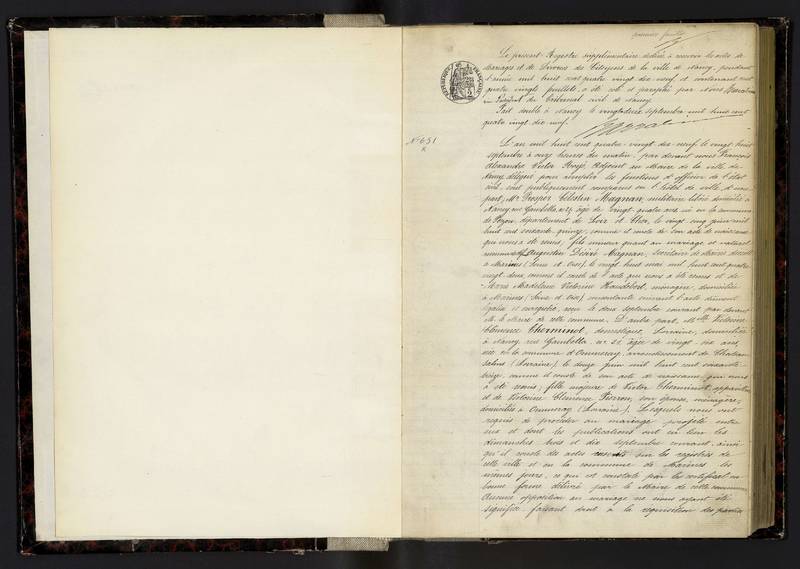 premier feuillet
Le présent Registre supplémentaire destiné à recevoir les actes de
Mariages et de Divorces des Citoyens de la ville de Nancy, pendant
l'année mil huit cent quatre vingt dix neuf, et contenant cent
quatre vingts feuillets, a été coté et paraphé par Nous
Président du Tribunal civil de Nancy.
Fait double à Nancy le septembre mil huit cent
quatre vingt dix neuf.
RÉPUBLIQUE FRANÇAISE
N° 651
L'an mil huit cent quatre-vingt dix neuf le vingt huit
septembre à onze heures du matin, par devant nous François
Alexandre Victor Adjoint au Maire de la ville de
Nancy, délégué pour remplir les fonctions d'officier de l'état
civil, sont publiquement comparus en l'hôtel de ville, d'une
part, Mr Prosper Célestin Magnan, militaire libéré, domicilié à
Nancy, rue Gambetta, âgé de vingt quatre ans, né en la commune
de département de Loir et Cher, le vingt cinq juin mil
huit cent soixante quinze, comme il conste de son acte de naissance
qui nous a été remis, fils mineur quant au mariage et naturel
Augustin Désiré Magnan, décédé
à Marines (Seine et Oise), le vingt huit mil huit cent quatre
vingt deux, comme il conste de l'acte qui nous a été remis et de
Marie Madeleine Victorine ménagère, domiciliée
à Marines (Seine et Oise) consentante suivant l'acte dûment
légalisé et enregistré, reçu le deux septembre courant par devant
M. le Maire de cette commune. D'autre part, Melle Victorine
Clémence Cherminot, domestique, Lorraine, domiciliée
à Nancy, rue Gambetta, âgée de vingt-six ans,
née en la commune d'Ommeray, arrondissement de Château
Salins (Lorraine), le douze juin mil huit cent soixante
treize, comme il conste de son acte de naissance qui nous
a été remis, fille majeure de Victor Cherminot,
et de Victorine Clémence Pierron, son épouse, ménagère,
domiciliés à Ommeray (Lorraine). Lesquels nous ont
requis de procéder au mariage projeté entre
eux et dont les publications ont eu lieu les
dimanches trois et dix septembre courant, ainsi
qu'il conste des actes inscrits sur les registres de
cette ville et en la commune de Marines les
mêmes jours, ce qui est constaté par le certificat en
bonne forme délivré par le Maire de cette commune.
Aucune opposition au mariage ne nous ayant été
signifiée, faisant droit à la réquisition des parties